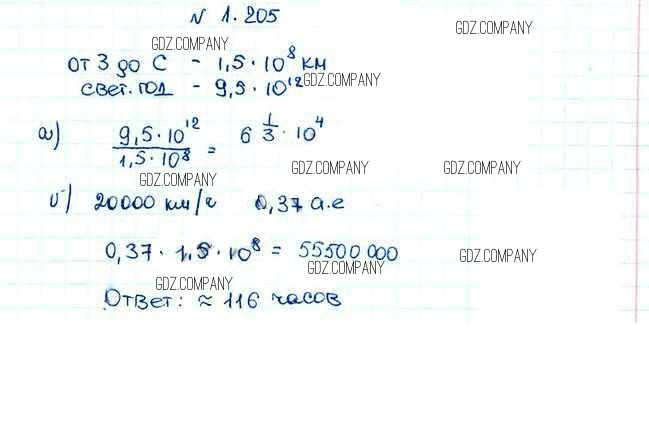 N 1.205
GDZ.COMPANY
GDZ.COMPANY
от З до С - 1,5 · 10^8 км
GDZ.COMPANY
свет. год - 9,5 · 10^12
а) 9,5 · 10^12 / 1,5 · 10^8 = 6 1/3 · 10^4
GDZ.COMPANY
GDZ.COMPANY
GDZ.COMPANY
б) 20000 км/с 0,37 а.е
0,37 · 1,5 · 10^8 = 55500 000
GDZ.COMPANY
GDZ.COMPANY
GDZ.COMPANY
Ответ: ≈ 116 часов